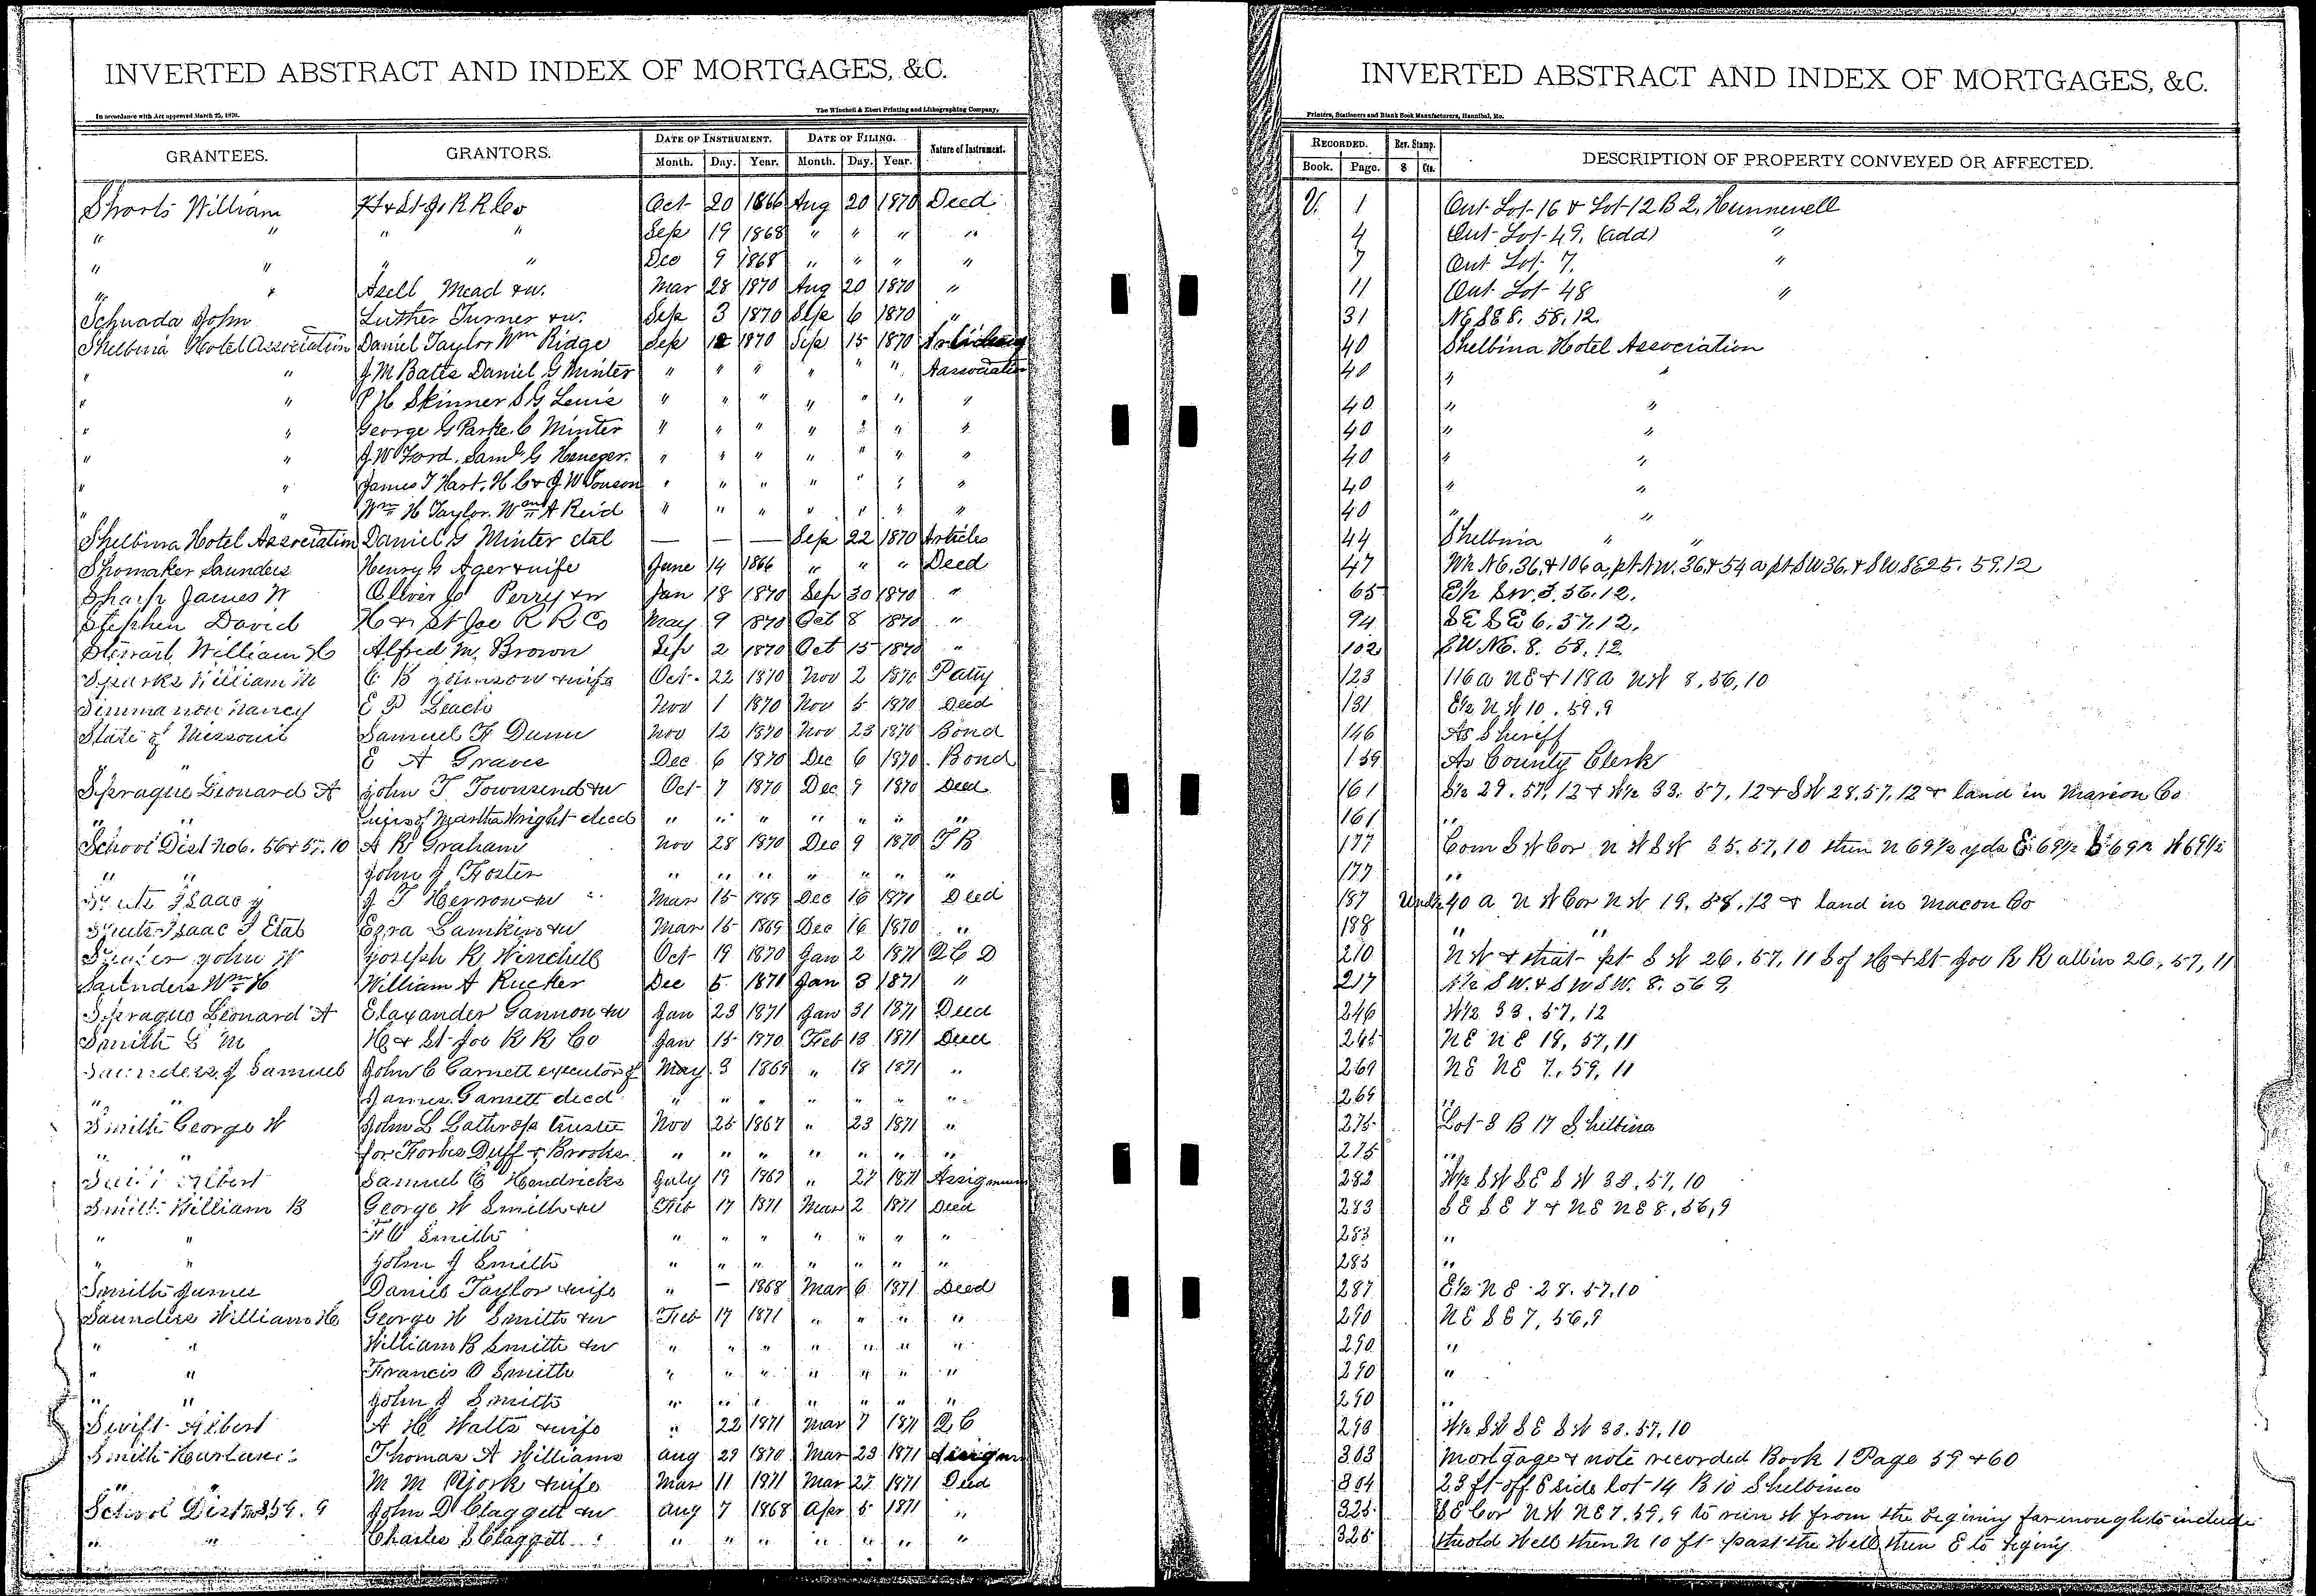 INVERTED ABSTRACT AND INDEX OF MORTGAGES, &C.
In accordance with Act approved March 25, 1870.
The Winchell & Ebert Printing and Lithographing Company,
GRANTEES. GRANTORS. DATE OF INSTRUMENT. DATE OF FILING. Nature of Instrument.
Month. Day. Year. Month. Day. Year.
Shorts William H & St. Jo. R R Co Oct 20 1866 Aug 20 1870 Deed
" " " " Sep 19 1868 " " " "
" " " " Dec 9 1868 " " " "
" " Asell Mead & w. Mar 28 1870 Aug 20 1870 "
Schnada John Luther Turner & w. Sep 3 1870 Sep 6 1870 "
Shelbina Hotel Association Daniel Taylor Wm Ridge Sep 12 1870 Sep 15 1870
" " J M Bates Daniel G Minter " " " " " " Aassociation
" " P H Skinner S G Lewis " " " " " " "
" " George G Parke. C Minter " " " " " " "
" " J. W Ford. Saml G Heneger. " " " " " " "
" " James T Hart. H C & J W Touson " " " " " " "
" " Wm H Taylor. Wm A Reid " " " " " " "
Shelbina Hotel Association Daniel G Minter etal — — — Sep 22 1870 Articles
Shomaker Saunders Henry G Ager & wife June 14 1866 " " " Deed
Sharp James W Oliver Perry & w Jan 18 1870 Sep 30 1870 "
Stephen David H & St Joe R R Co May 9 1870 Oct 8 1870 "
Stewart William H Alfred M. Brown Sep 2 1870 Oct 15 1870 "
Sparks William M C B Johnson & wife Oct. 22 1870 Nov 2 1870
Simmanon Nancy E P Leach Nov 1 1870 Nov 5 1870 Deed
State of Missouri Samuel F Dunn Nov 12 1870 Nov 23 1870 Bond
" E A Graves Dec 6 1870 Dec 6 1870. Bond
Sprague Leonard A John T Townsend & w Oct 7 1870 Dec 9 1870 Deed
" " heirs of Martha Wright deed " " " " " " "
School Dist No 6. 56 & 57. 10 A R Graham Nov 28 1870 Dec 9 1870 T B
" " John J Foster " " " " " " "
Isaac J J T Herron & w Mar 15 1869 Dec 16 1870 Deed
Isaac J Etal Ezra Lamkin & w Mar 15 1869 Dec 16 1870 "
John W Joseph R Winchell Oct 19 1870 Jan 2 1871 Q C D
Saunders Wm H William A Rucker Dec 5 1871 Jan 3 1871 "
Sprague Leonard A Elaxander Gannon & w Jan 23 1871 Jan 31 1871 Deed
Smith S M H & St Joe R R Co Jan 15 1870 Feb 13 1871 Deed
Saunders. J Samuel John C Garnett executor of May 3 1869 " 18 1871 "
" " James Garnett deed " " " " " " "
Smith George W John L Lathrop trustee Nov 25 1867 " 23 1871 "
" " for Forbes Duff & Brooks " " " " " " "
Albert Samuel C Hendricks July 19 1867 " 27 1871 Assignment
Smith William B George W Smith & w Feb 17 1871 Mar 2 1871 Deed
" " F O Smith " " " " " " "
" " John J Smith " " " " " " "
Smith James Daniel Taylor & wife " — 1868 Mar 6 1871 Deed
Saunders William H George W Smith & w Feb 17 1871 " " " "
" " William B Smith & w " " " " " " "
" " Francis O Smith " " " " " " "
" " John J Smith " " " " " " "
Swift Albert A H Walts & wife " 22 1871 Mar 7 1871 Q C
Smith Thomas A Williams Aug 29 1870 Mar 23 1871
" " M M York & wife Mar 11 1871 Mar 27 1871 Deed
School Dist 59. 9 John D Claggett & w Aug 7 1868 Apr 5 1871 "
" " Charles S Claggett " " " " " " "
INVERTED ABSTRACT AND INDEX OF MORTGAGES, &C.
Printers, Stationers and Blank Book Manufacturers, Hannibal, Mo.
RECORDED. Rev. Stamp. DESCRIPTION OF PROPERTY CONVEYED OR AFFECTED.
Book. Page. $ Cts.
V. 1 Out Lot 16 & Lot 12 B 2. Hunnewell
4 Out Lot 49. (add) "
7 Out Lot 7. "
11 Out Lot 48 "
31 NE SE 8. 58. 12.
40 Shelbina Hotel Association
40 " "
40 " "
40 " "
40 " "
40 " "
40 " "
44 Shelbina " "
47 W½ NE. 36. & 106 a, pt NW. 36. & 54 a pt SW 36. & SW SE 25. 59. 12
65 E½ SW. 3. 56. 12.
94 SE SE 6. 57. 12.
102 SW NE. 8. 58. 12
123 116 a NE & 118 a NW 8, 56, 10
131 E½ NW 10. 59. 9
146 As Sheriff
159 As County Clerk
161 S½ 29. 57, 12 & N½ 33. 57. 12 & SW 28. 57. 12 & land in Marion Co
161 "
177 Com SW Cor NW SW 35. 57, 10 then N 69½ yds E 69½ S 69½ W 69½
177 "
187 Und½ 40 a NW Cor NW 19. 58. 12 & land in Macon Co
188 " "
210 NW & that pt SW 26. 57. 11 S of H & St Joe R R all in 26. 57. 11
217 N½ SW. & SW SW. 8. 56 9
246 W½ 33. 57, 12
265 NE NE 18, 57, 11
269 NE NE 7. 59, 11
269 "
275 Lot 3 B 17 Shelbina
275 "
282 W½ SW SE SW 33. 57, 10
283 SE SE 7 & NE NE 8, 56, 9
283 "
283 "
287 E½ NE 28. 57. 10
290 NE SE 7, 56, 9
290 "
290 "
290 "
293 W½ SW SE SW 33. 57, 10
303 Mortgage & note recorded Book 1 Page 59 & 60
304 23 ft off E side lot 14 B 10 Shelbina
325 SE Cor NW NE 7. 59, 9 to run W from the begining far enough to include
325 the old Well then N 10 ft past the Well then E to